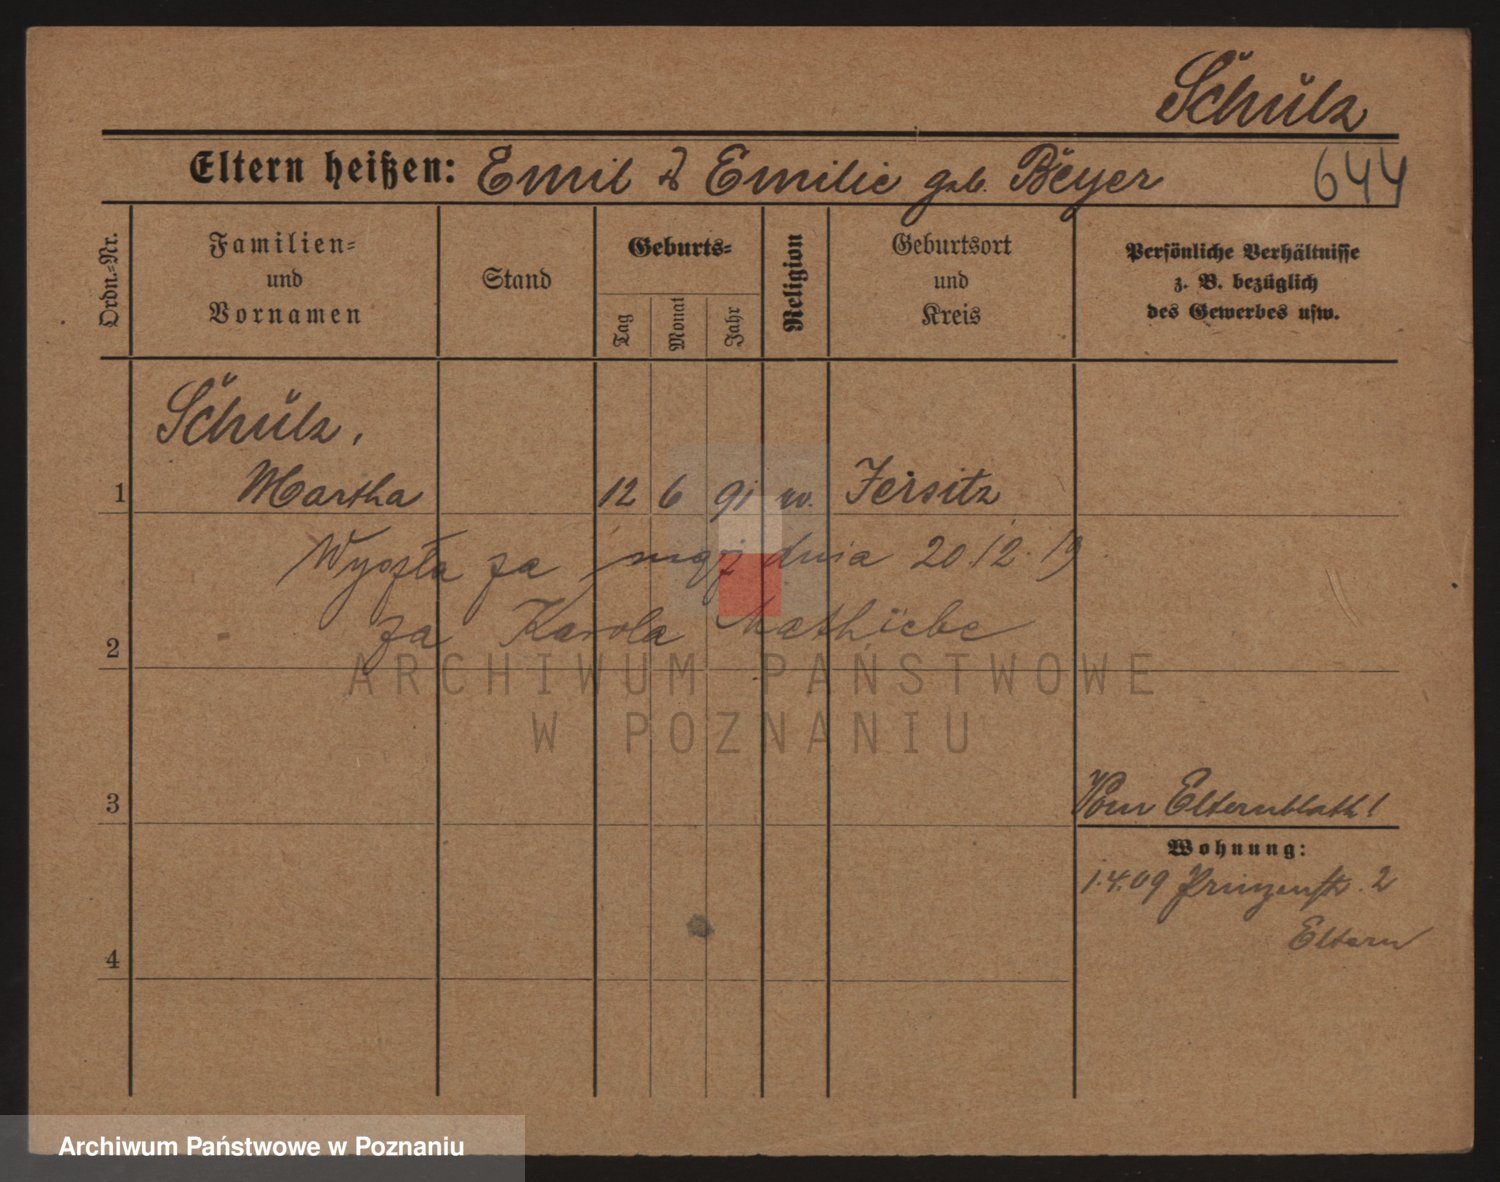 Schulz
Eltern heißen: Emil & Emilie geb. Beyer
644
Ordn.-Nr.
Familien- und Vornamen
Stand
Geburts-
Tag
Monat
Jahr
Religion
Geburtsort und Kreis
Persönliche Verhältnisse
z. B. bezüglich
des Gewerbes usw.
Schulz,
1 Martha 12 6 91 ev. Jersitz
Wyszła za mąż dnia 20.12.19
za Karola Mathiebe
2
ARCHIWUM PAŃSTWOWE
W POZNANIU
3
Vom Elternblatt!
Wohnung:
1.4.09 Prinzenstr. 2
Eltern
4
Archiwum Państwowe w Poznaniu